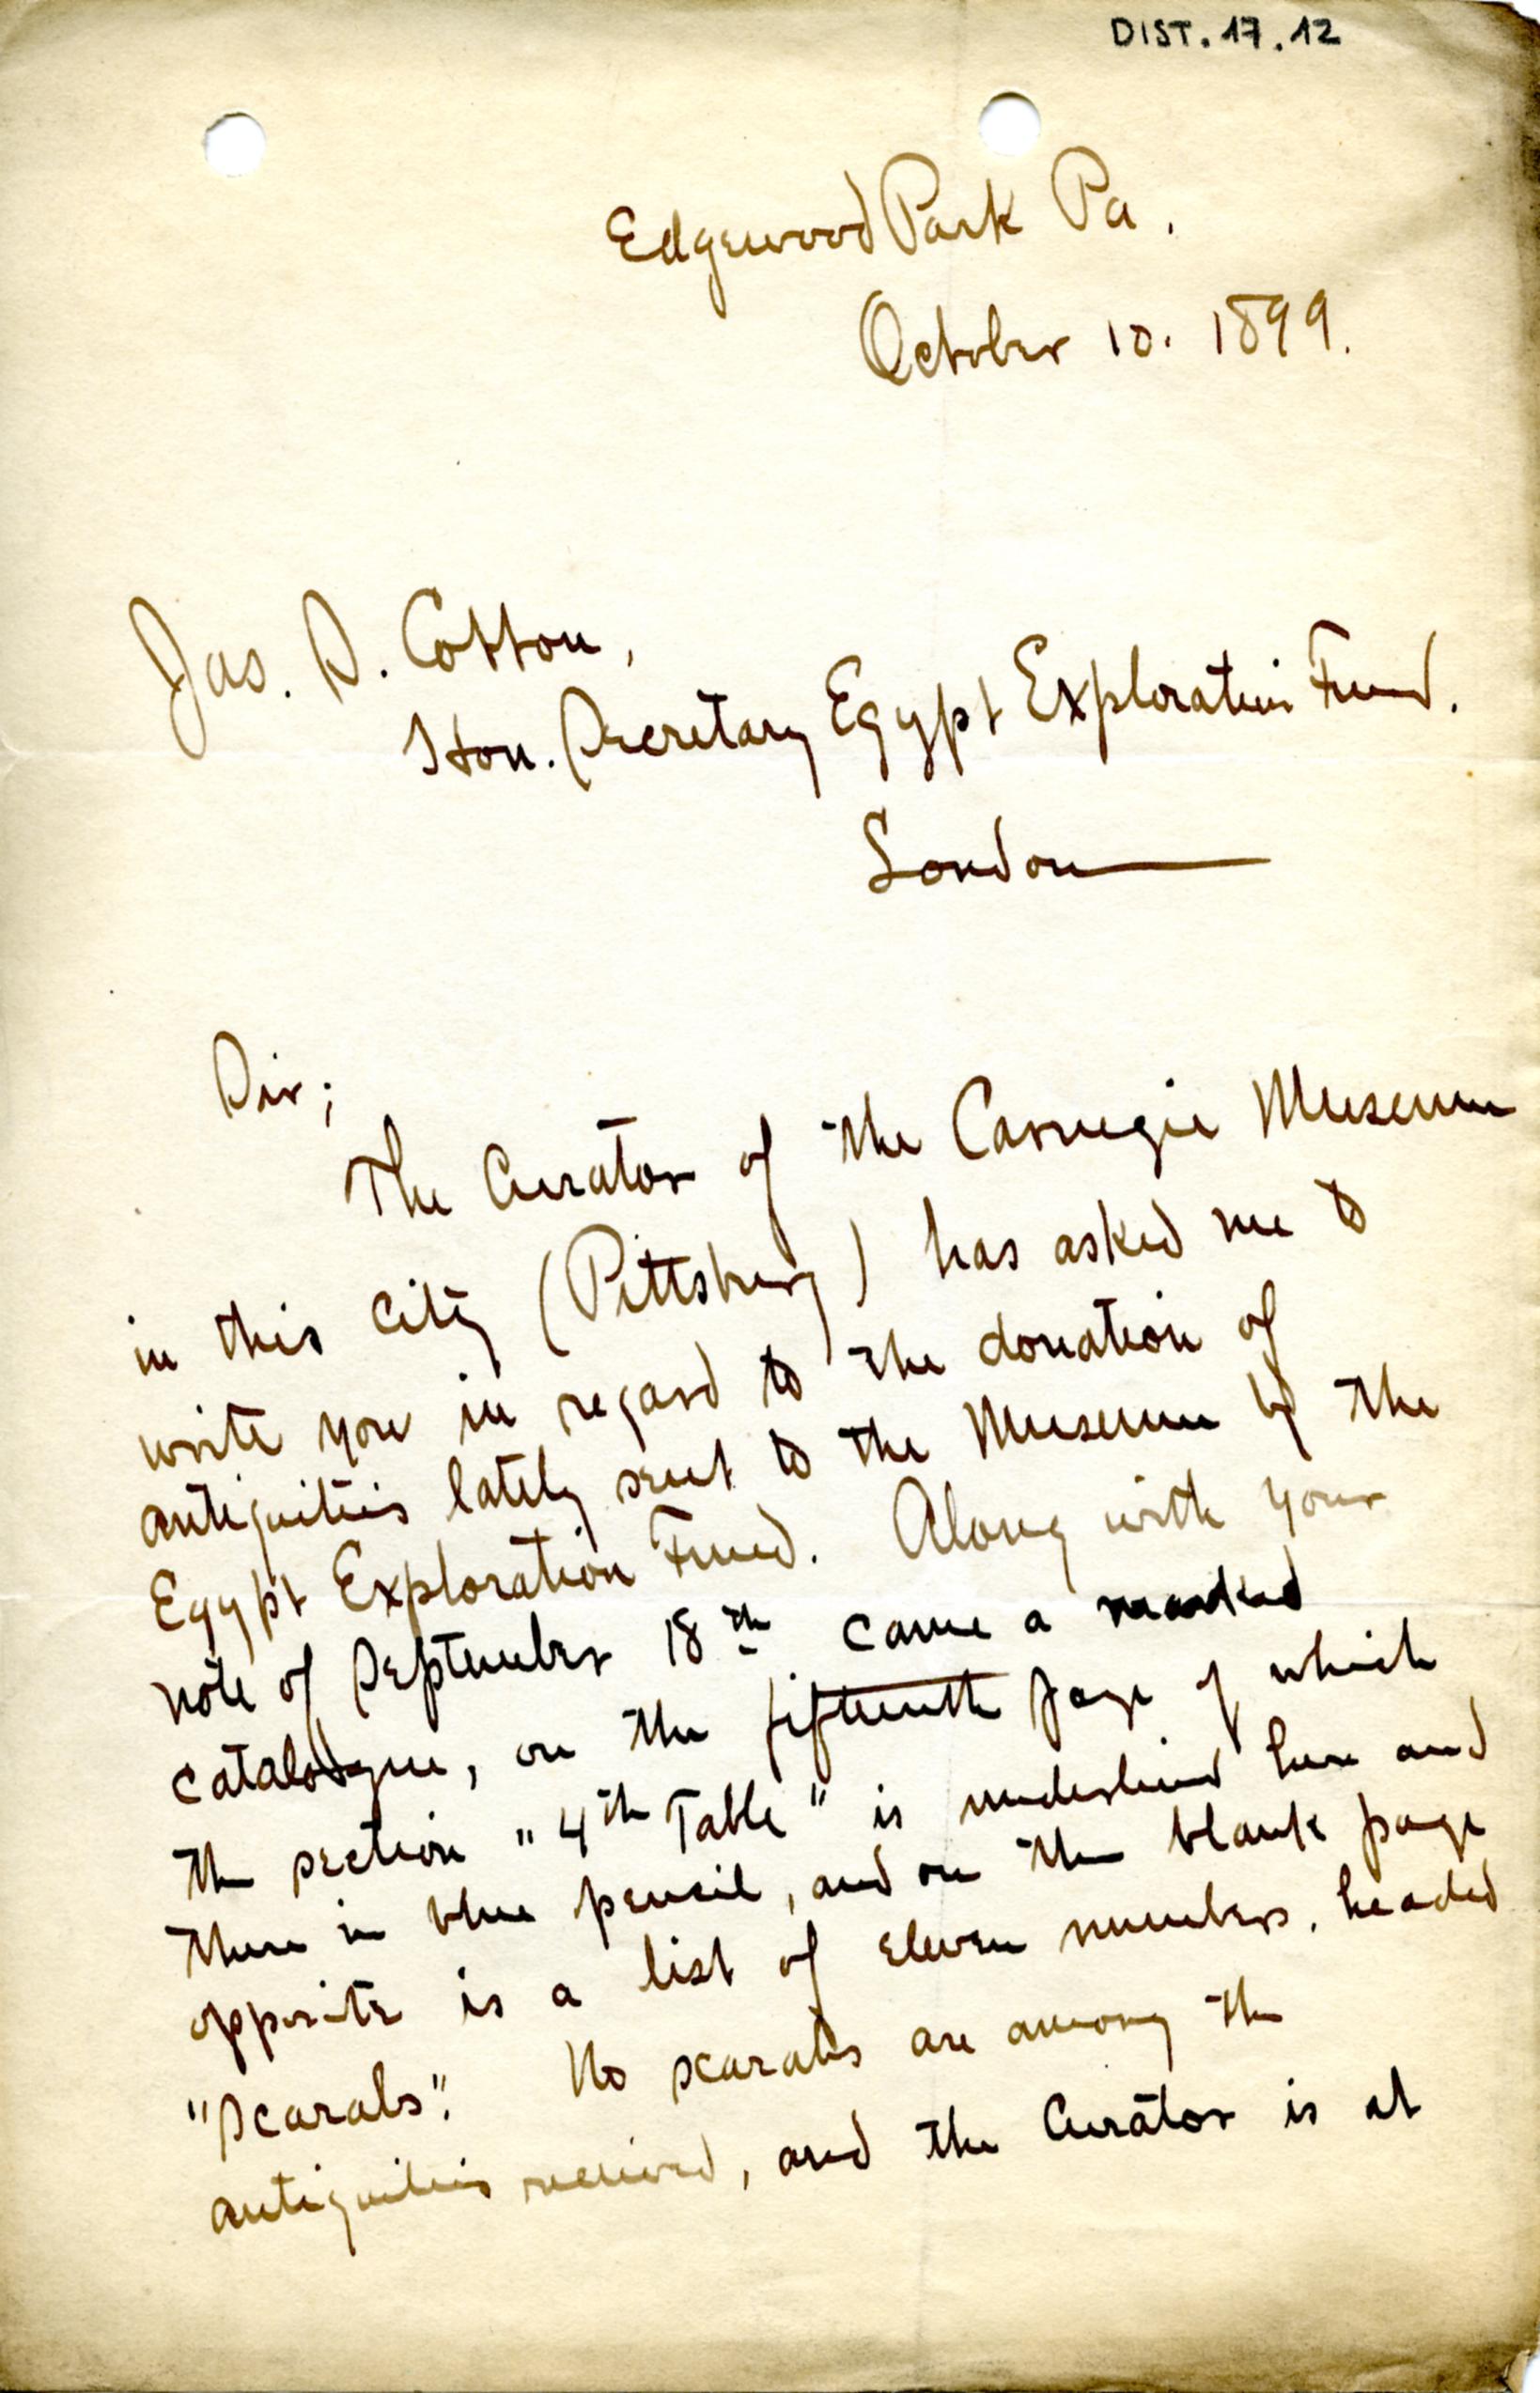 DIST. 17. 12
Edgewood Park Pa.
October 10. 1899.
Jas. S. Cotton,
Hon. Secretary Egypt Exploration Fund.
London
Sir;
The Curator of the Carnegie Museum
in this city (Pittsburg) has asked me to
write you in regard to the donation of
antiquities lately sent to the Museum by the
Egypt Exploration Fund. Along with your
note of September 18th came a marked
catalogue, on the fifteenth page of which
the section "4th Table" is underlined here and
there in blue pencil, and on the blank page
opposite is a list of eleven numbers, headed
"Scarabs". No scarabs are among the
antiquities received, and the Curator is at